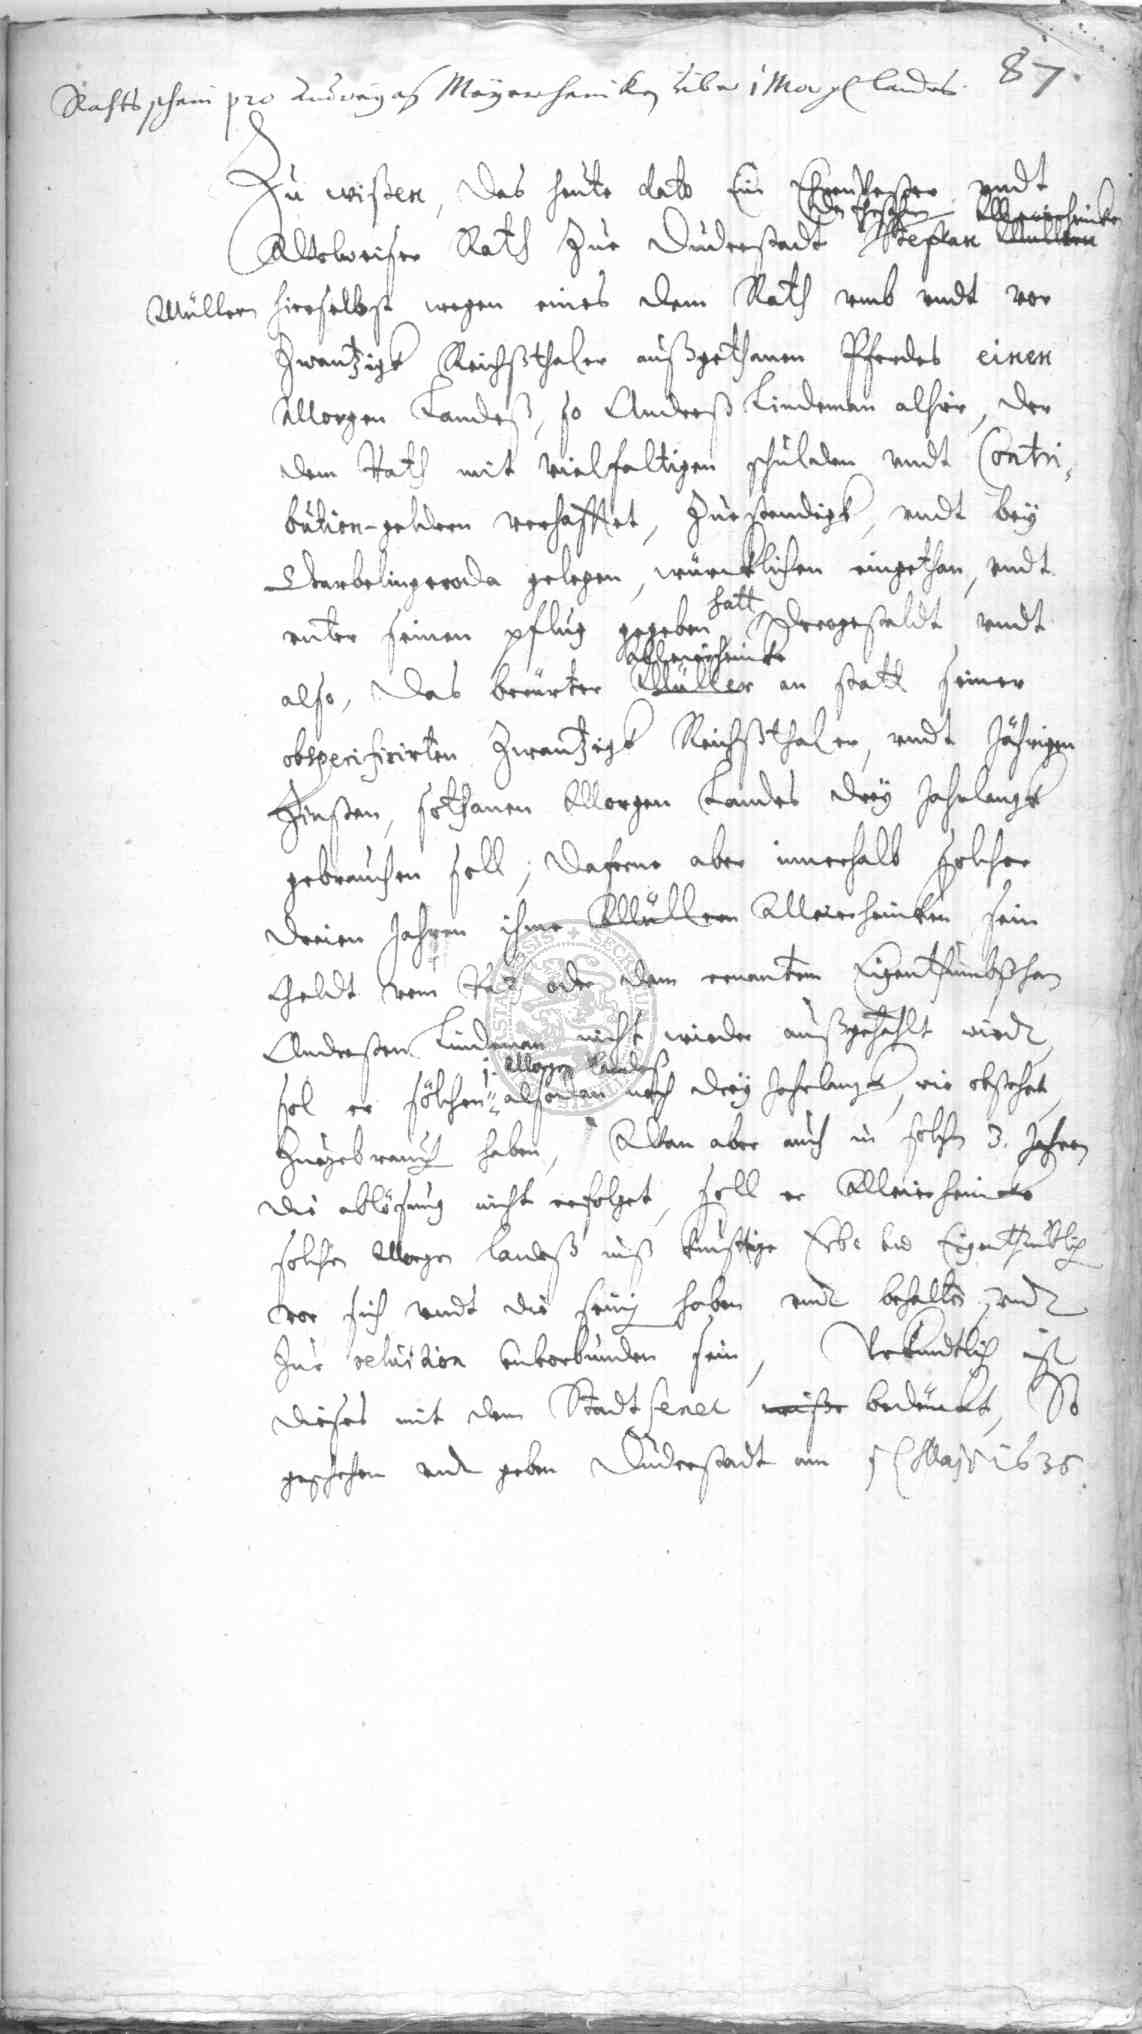 87.
Rahts schein pro Andreas Meÿerheniken über 1 Morgen landes.
Zu wißen, das heute dato Ein Ehrenvester undt
Meierheincke
Altsweiser Rath Zur Duderstadt Stephan Müllern
Müllern hierselbst wegen eines dem Rath umb undt vor
Zwantzigk Reichßthaler außgethanen Pferdes einen
Morgen Landeß, so Andreß Lindeman alhier, der
dem Rath mit vielfaltigen schulden undt Contri-
bution-geldern verhafftet, Zustendigk, undt beÿ
Werbelingeroda gelegen, würcklichen eingethan, undt
hatt
unter seinen pflug gegeben Dergestaldt undt
Meierheincke
also, das berürter Müller an statt seiner
obspecificirten Zwantzigk Reichßthaler, undt Jährigen
Zinßen, sothanen Morgen Landes dreÿ Jahrlangk
gebrauchen soll, daferne aber innerhalb solcher
dreien Jahren ihme Müllern Meierheincken sein
Geldt vom Rat oder dem genanten Eigenthumbßhern
Andreßen Lindeman nicht wieder außgezahlt wirdt,
1. Morgen Landeß
sol er solchen alsodan noch dreÿ Jahrlangk, wie obstehet,
Zugebrauch haben, Wan aber auch in solchen 3. Jahren
die ablösung nicht erfolget, soll er Meierheincke
solchen Morgen landeß unß künfftige Erb und Eigenthümblich
vor sich undt die seinig haben undt behalten, undt
Zur reluition unverbunden sein, Urkundtlich ist
dieses mit dem Stadt secret bedruckt, So
geschehen und geben Duderstadt am 5 Maji 1636.